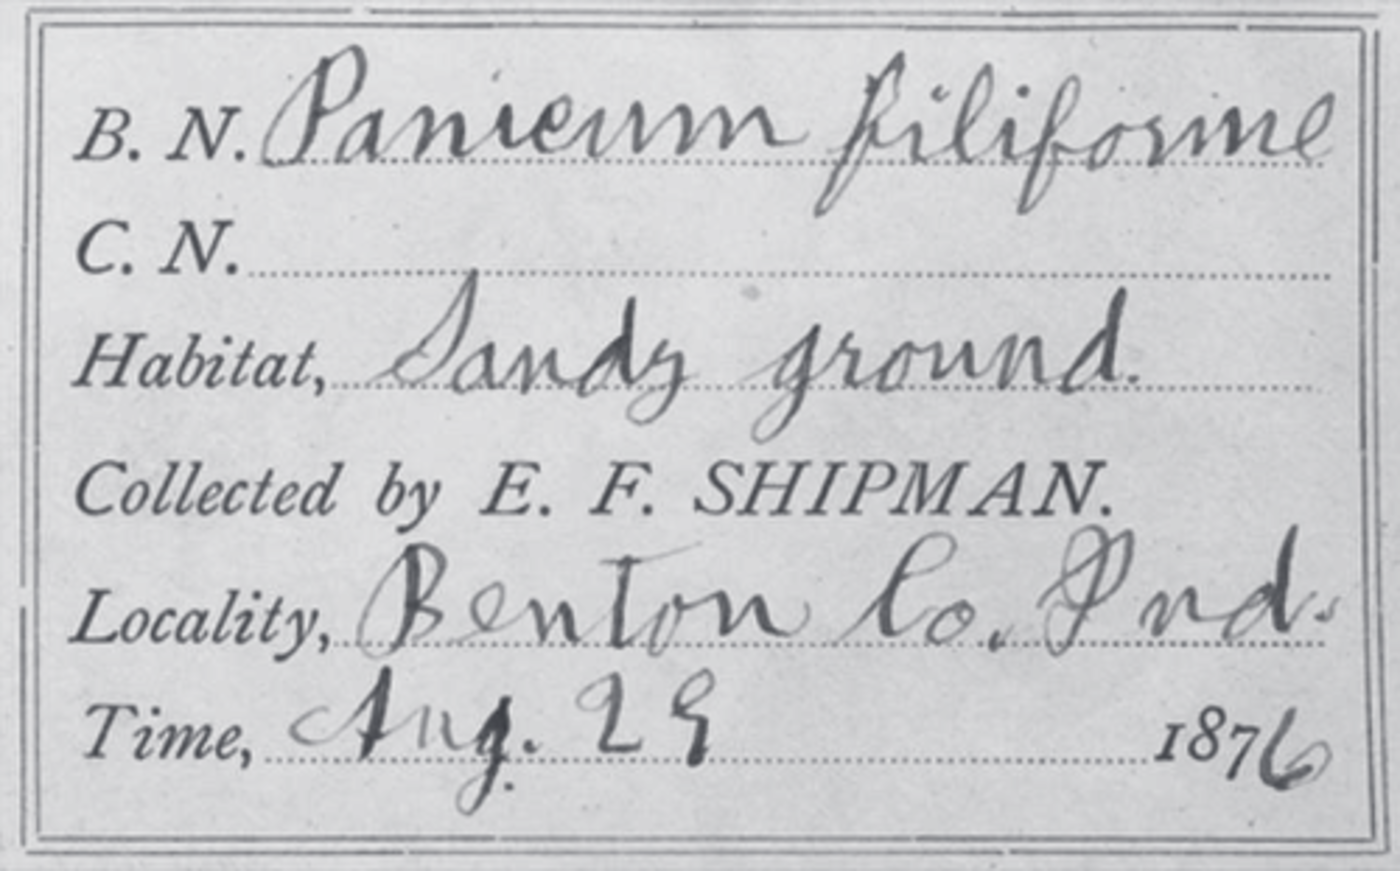 B. N. Panicum filiforme
C. N.
Habitat, Sandy ground.
Collected by E. F. SHIPMAN.
Locality, Benton Co. Ind.
Time, Aug. 29 1876